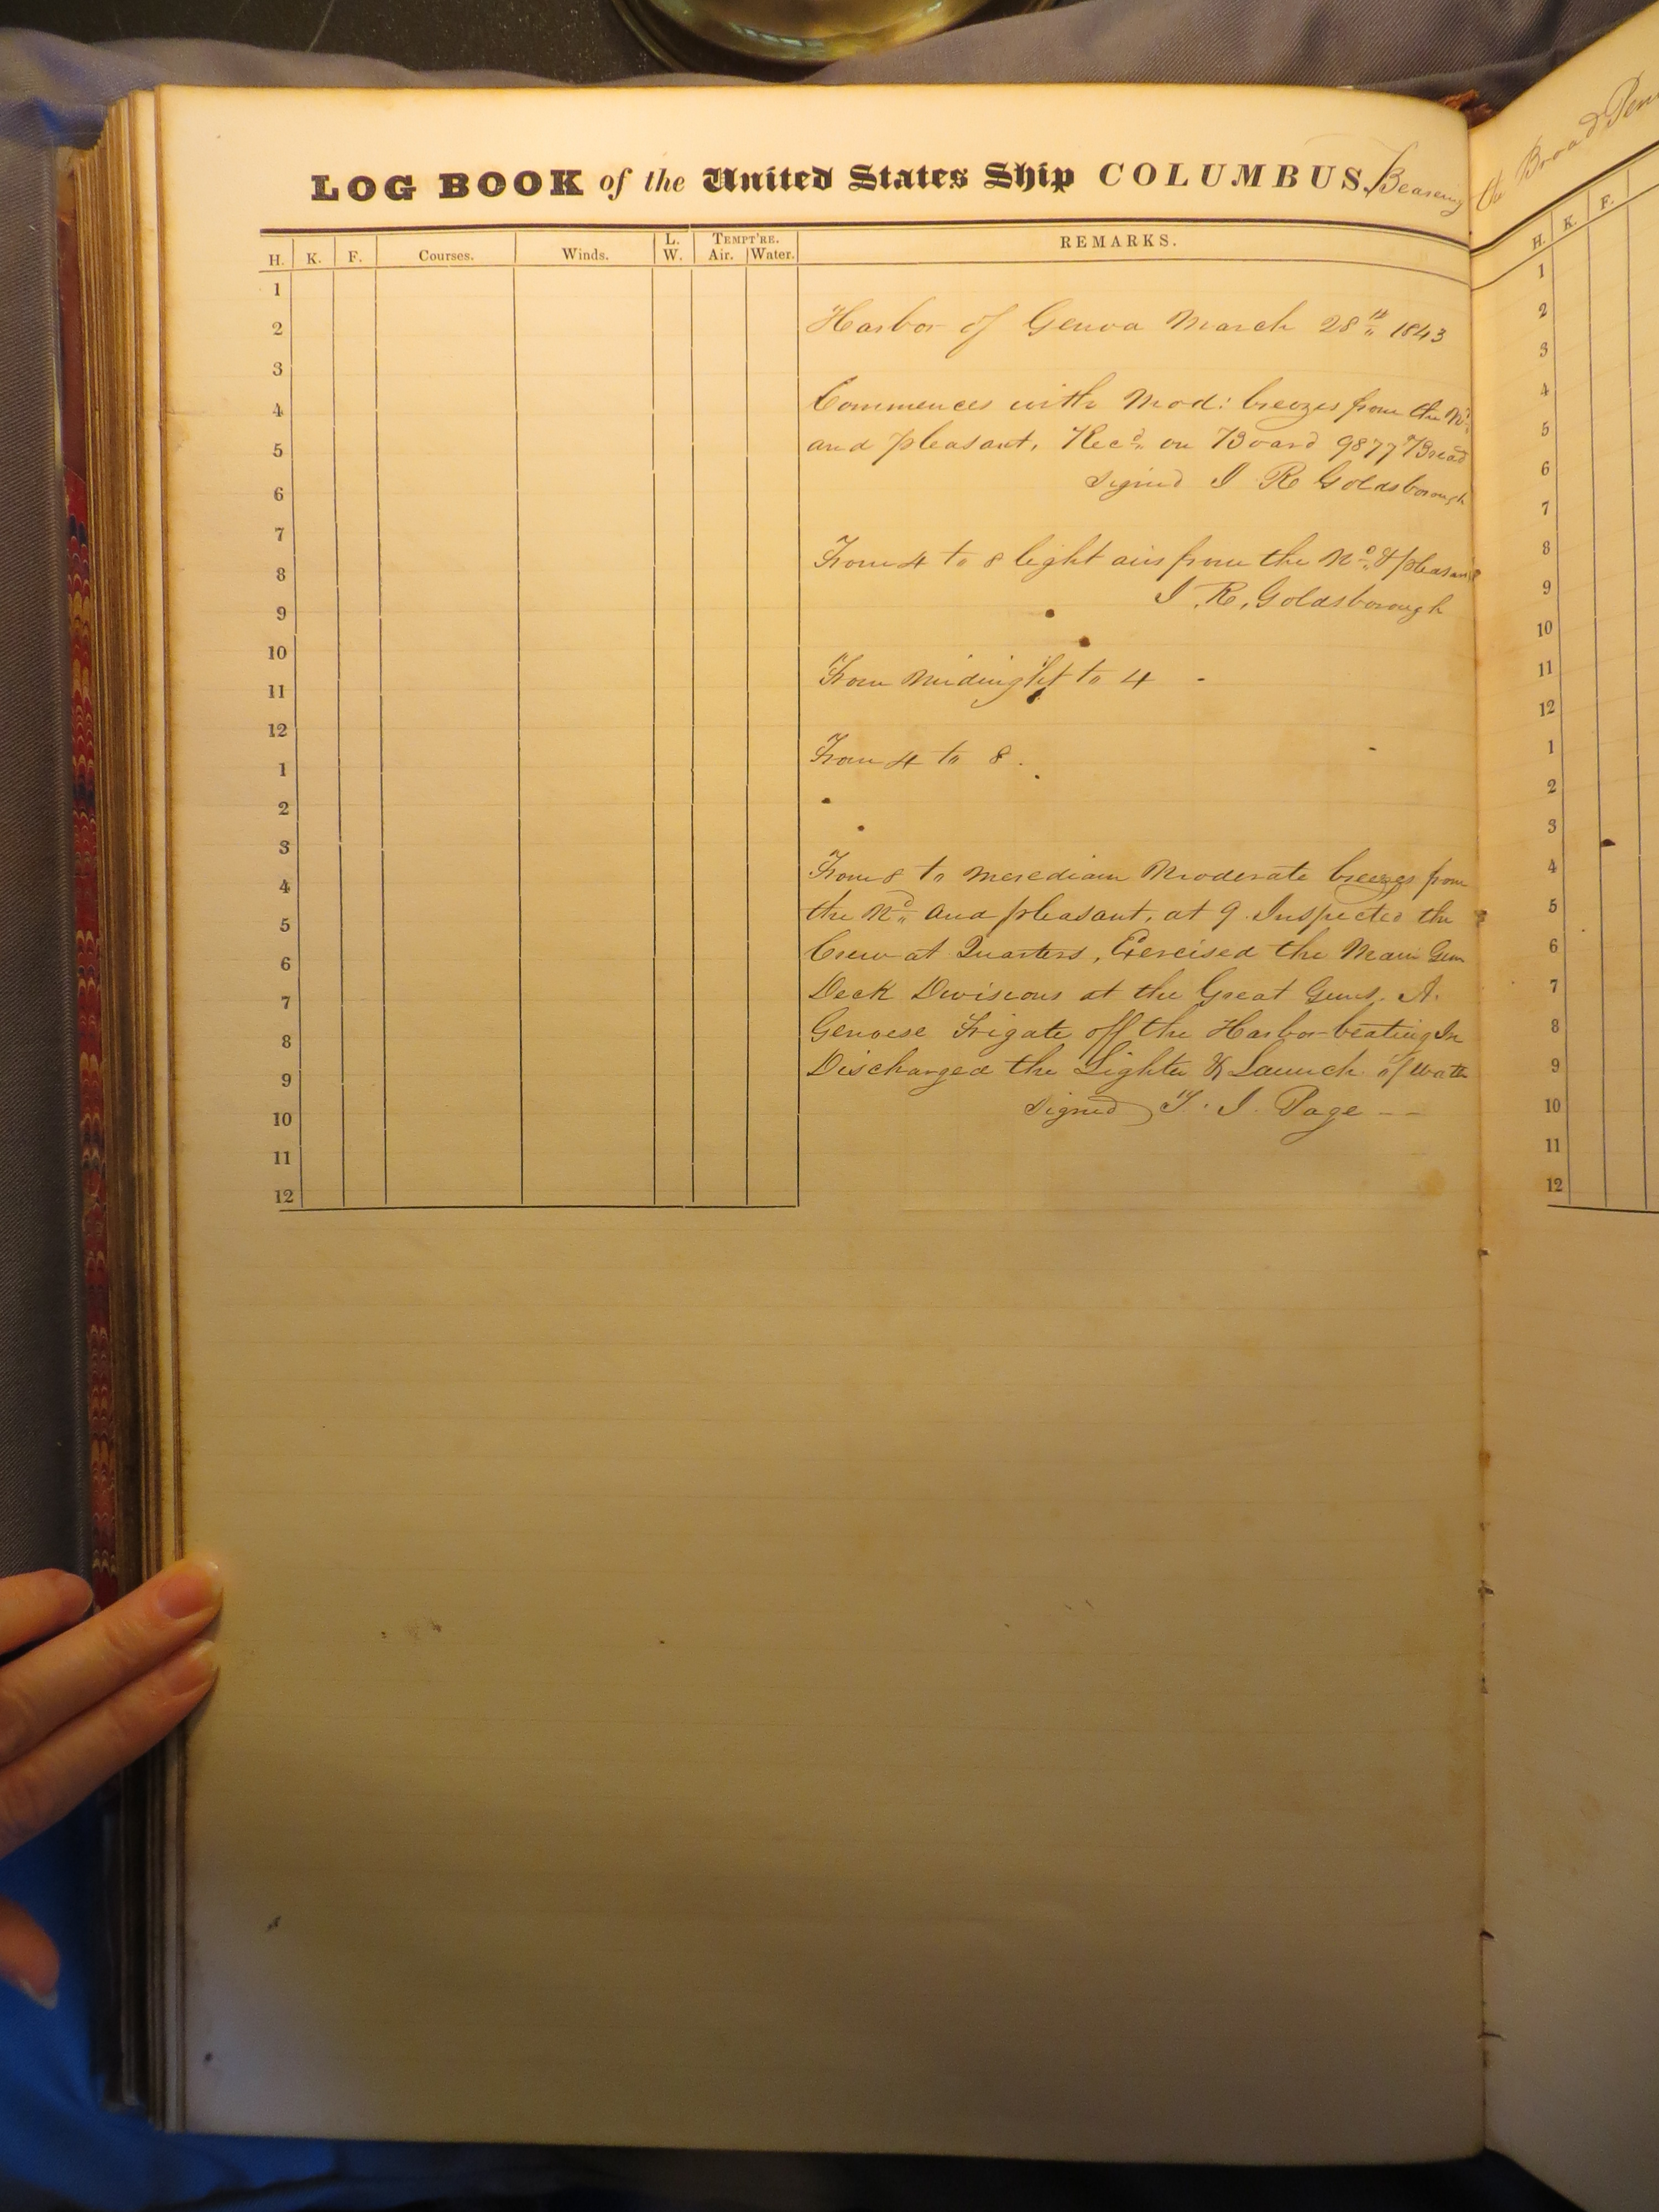 LOG BOOK of the United States Ship COLUMBUS, Bearing
the Broad Pen
H. K. F. Courses. Winds. L. W. TEMPT'RE. Air. Water. REMARKS.
1
2
3
4
5
6
7
8
9
10
11
12
1
2
3
4
5
6
7
8
9
10
11
12
Harbor of Genoa March 28th 1843
Commences with Mod: breezes from the Nd
and pleasant, Recd on Board 9877 Bread
Signed J R Goldsborough
From 4 to 8 light airs from the Nd & pleasant
J. R. Goldsborough
From Midnight to 4
From 4 to 8.
From 8 to Meredian Moderate breezes from
the Nd and pleasant, at 9 Inspected the
Crew at Quarters, Exercised the Main Gun
Deck Divisions at the Great Guns. A
Genoese Frigate off the Harbor beating In
Discharged the Lighter & Launch of Watr
Signed T. J. Page
H. K. F.
1
2
3
4
5
6
7
8
9
10
11
12
1
2
3
4
5
6
7
8
9
10
11
12